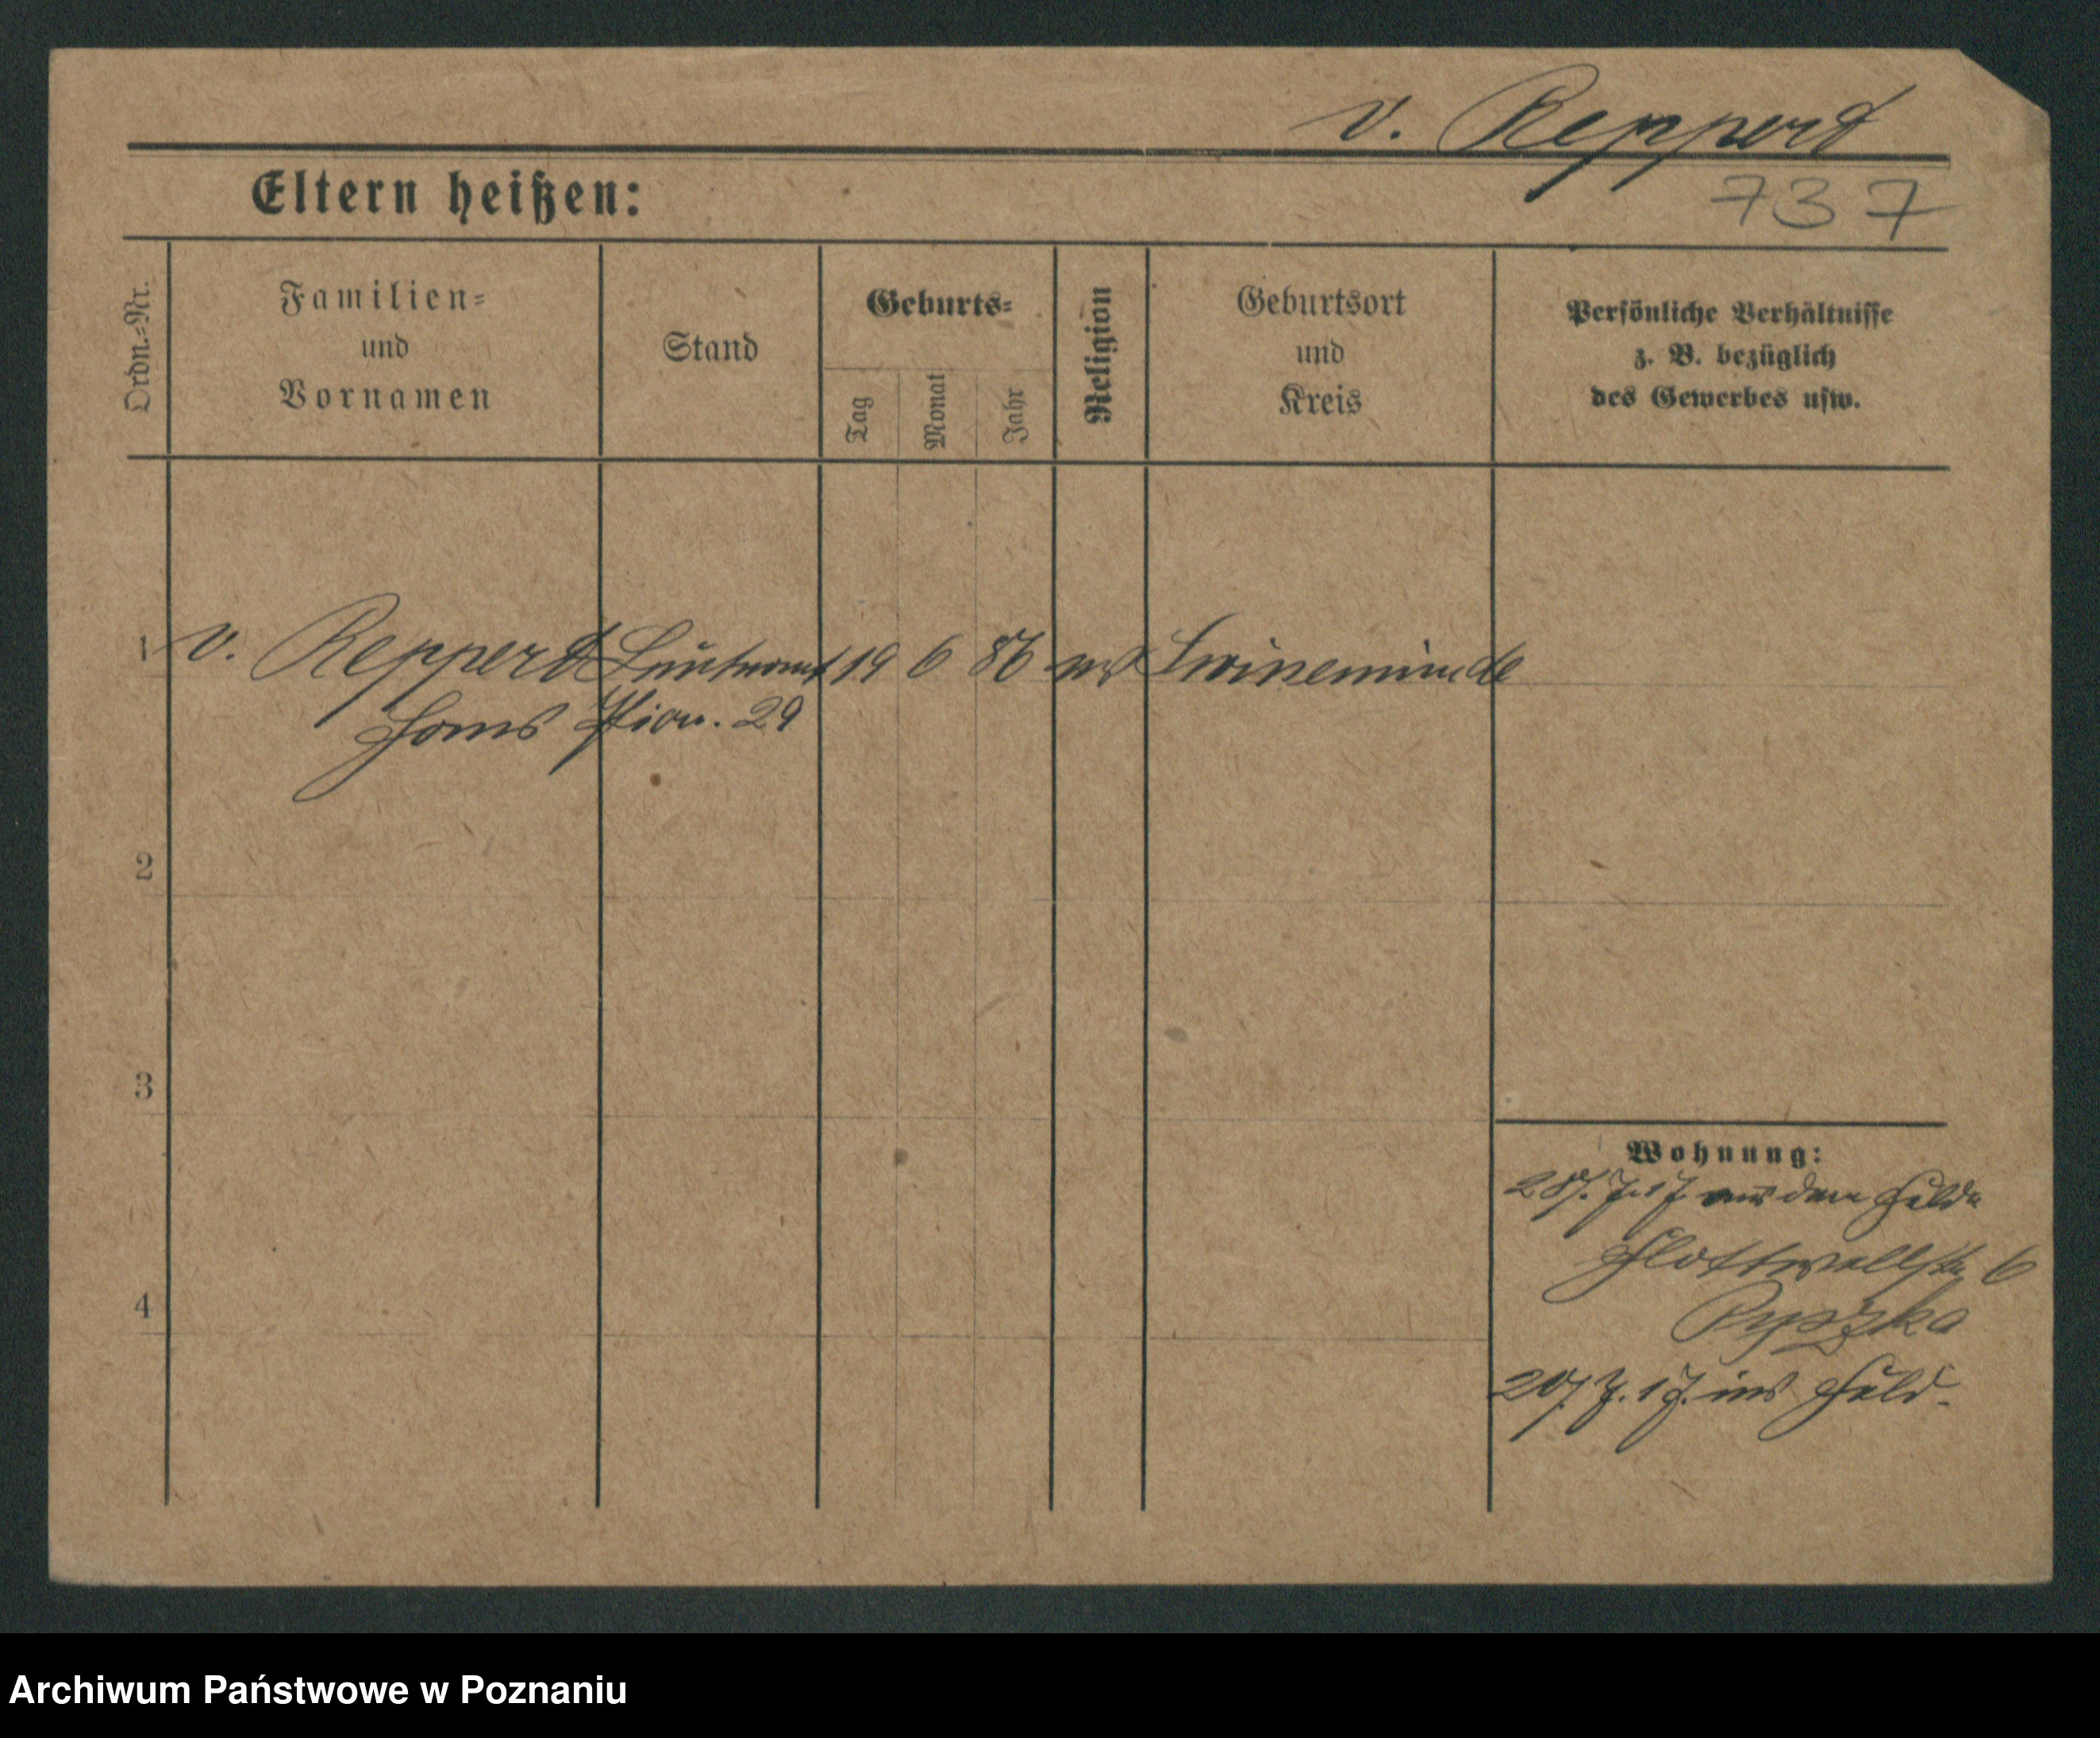 v. Repperd
737
Eltern heißen:
Ordn.-Nr.
Familien-
und
Vornamen
Stand
Geburts-
Tag
Monat
Jahr
Religion
Geburtsort
und
Kreis
Persönliche Verhältnisse
z. B. bezüglich
des Gewerbes usw.
1 v. Repperd Leutnant 19 6 86 Swinemünde
Hans Pion. 29
2
3
4
Wohnung:
28/.7.17 aus dem Felde
Flottwellstr 6
Ryszka
20/.7.17. ins Feld.
Archiwum Państwowe w Poznaniu